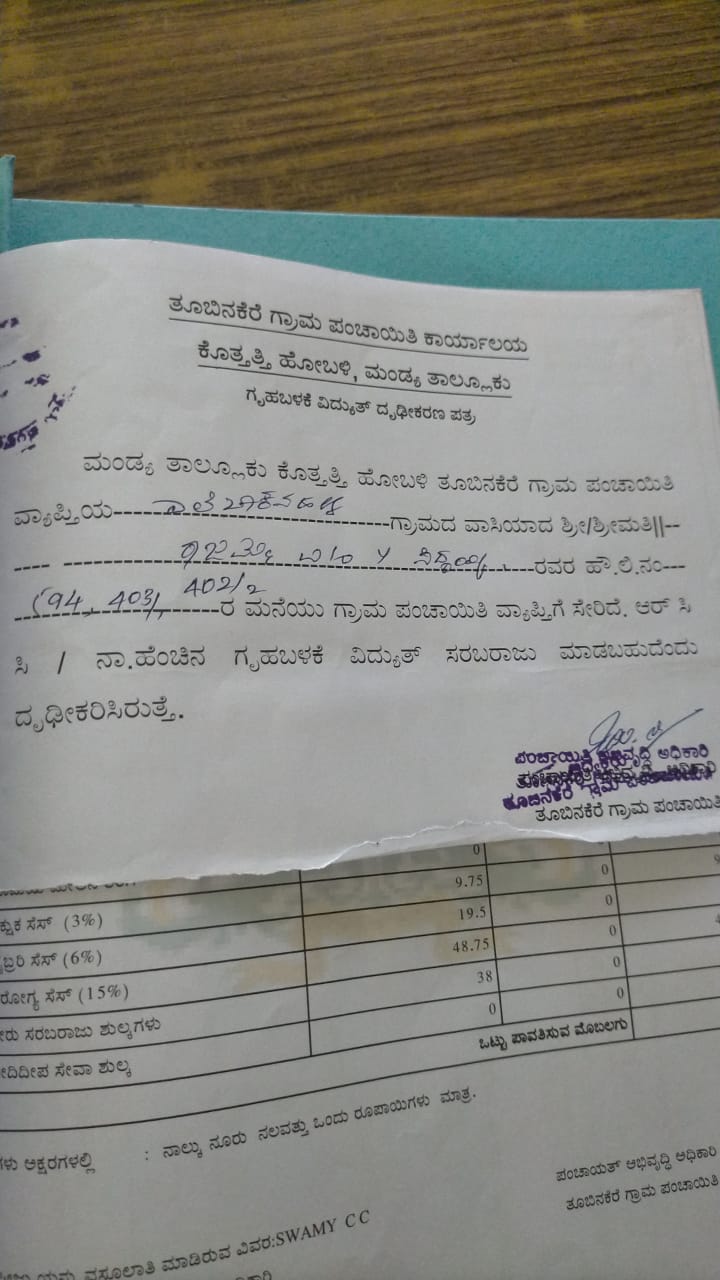 ತೂಬಿನಕೆರೆ ಗ್ರಾಮ ಪಂಚಾಯಿತಿ ಕಾರ್ಯಾಲಯ
ಕೊತ್ತತ್ತಿ ಹೋಬಳಿ, ಮಂಡ್ಯ ತಾಲ್ಲೂಕು
ಗೃಹಬಳಕೆ ವಿದ್ಯುತ್ ದೃಢೀಕರಣ ಪತ್ರ
ಮಂಡ್ಯ ತಾಲ್ಲೂಕು ಕೊತ್ತತ್ತಿ ಹೋಬಳಿ ತೂಬಿನಕೆರೆ ಗ್ರಾಮ ಪಂಚಾಯಿತಿ
ವ್ಯಾಪ್ತಿಯ-----------------------------------ಗ್ರಾಮದ ವಾಸಿಯಾದ ಶ್ರೀ/ಶ್ರೀಮತಿ||--
---- -----------------------------------------------ರವರ ಹೌ.ಲಿ.ನಂ---
594, 403/, 402/2 ----ರ ಮನೆಯು ಗ್ರಾಮ ಪಂಚಾಯಿತಿ ವ್ಯಾಪ್ತಿಗೆ ಸೇರಿದೆ. ಆರ್ ಸಿ
ಸಿ / ನಾ.ಹೆಂಚಿನ ಗೃಹಬಳಕೆ ವಿದ್ಯುತ್ ಸರಬರಾಜು ಮಾಡಬಹುದೆಂದು
ದೃಢೀಕರಿಸಿರುತ್ತೆ.
ಪಂಚಾಯಿತಿ ಅಭಿವೃದ್ಧಿ ಅಧಿಕಾರಿ
ತೂಬಿನಕೆರೆ ಗ್ರಾಮ ಪಂಚಾಯಿತಿ
0 0
9.75 0
ಸೆಸ್ (3%) 19.5 0
ಸೆಸ್ (6%) 48.75 0
ಸೆಸ್ (15%) 38 0
ಸರಬರಾಜು ಶುಲ್ಕಗಳು 0 0
ಸೇವಾ ಶುಲ್ಕ ಒಟ್ಟು ಪಾವತಿಸುವ ಮೊಬಲಗು
ಅಕ್ಷರಗಳಲ್ಲಿ : ನಾಲ್ಕು ನೂರು ನಲವತ್ತು ಒಂದು ರೂಪಾಯಿಗಳು ಮಾತ್ರ.
ಪಂಚಾಯತ್ ಅಭಿವೃದ್ಧಿ ಅಧಿಕಾರಿ
ತೂಬಿನಕೆರೆ ಗ್ರಾಮ ಪಂಚಾಯಿತಿ
ವಸೂಲಾತಿ ಮಾಡಿರುವ ವಿವರ:SWAMY C C